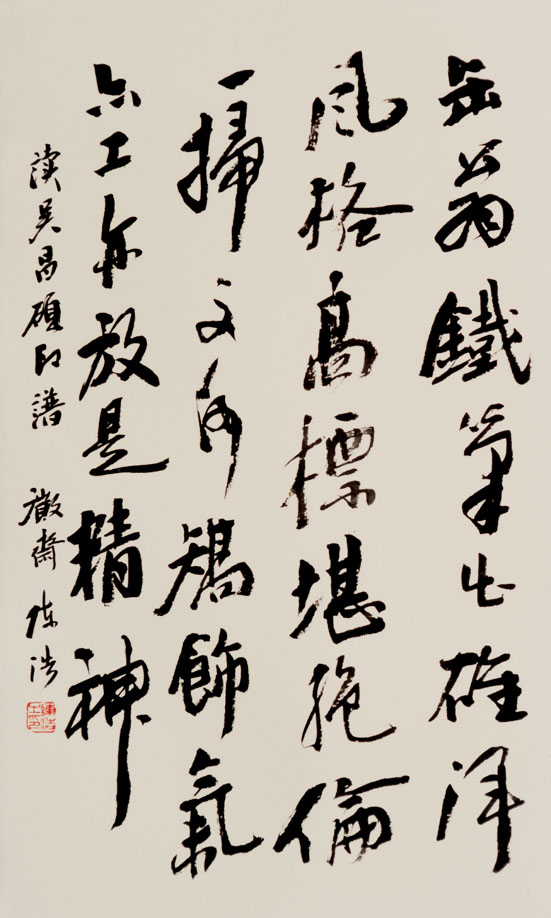 缶翁鐵筆出雄渾
風格高標堪絕倫
一掃文何矯飾氣
亦工亦放是精神
讀吳昌碩印譜 徽齋 陳浩